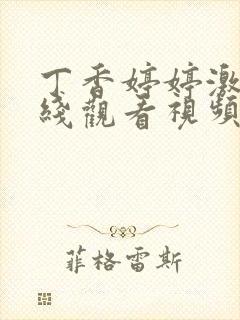 丁香婷婷激
綫觀看視頻
菲格雷斯